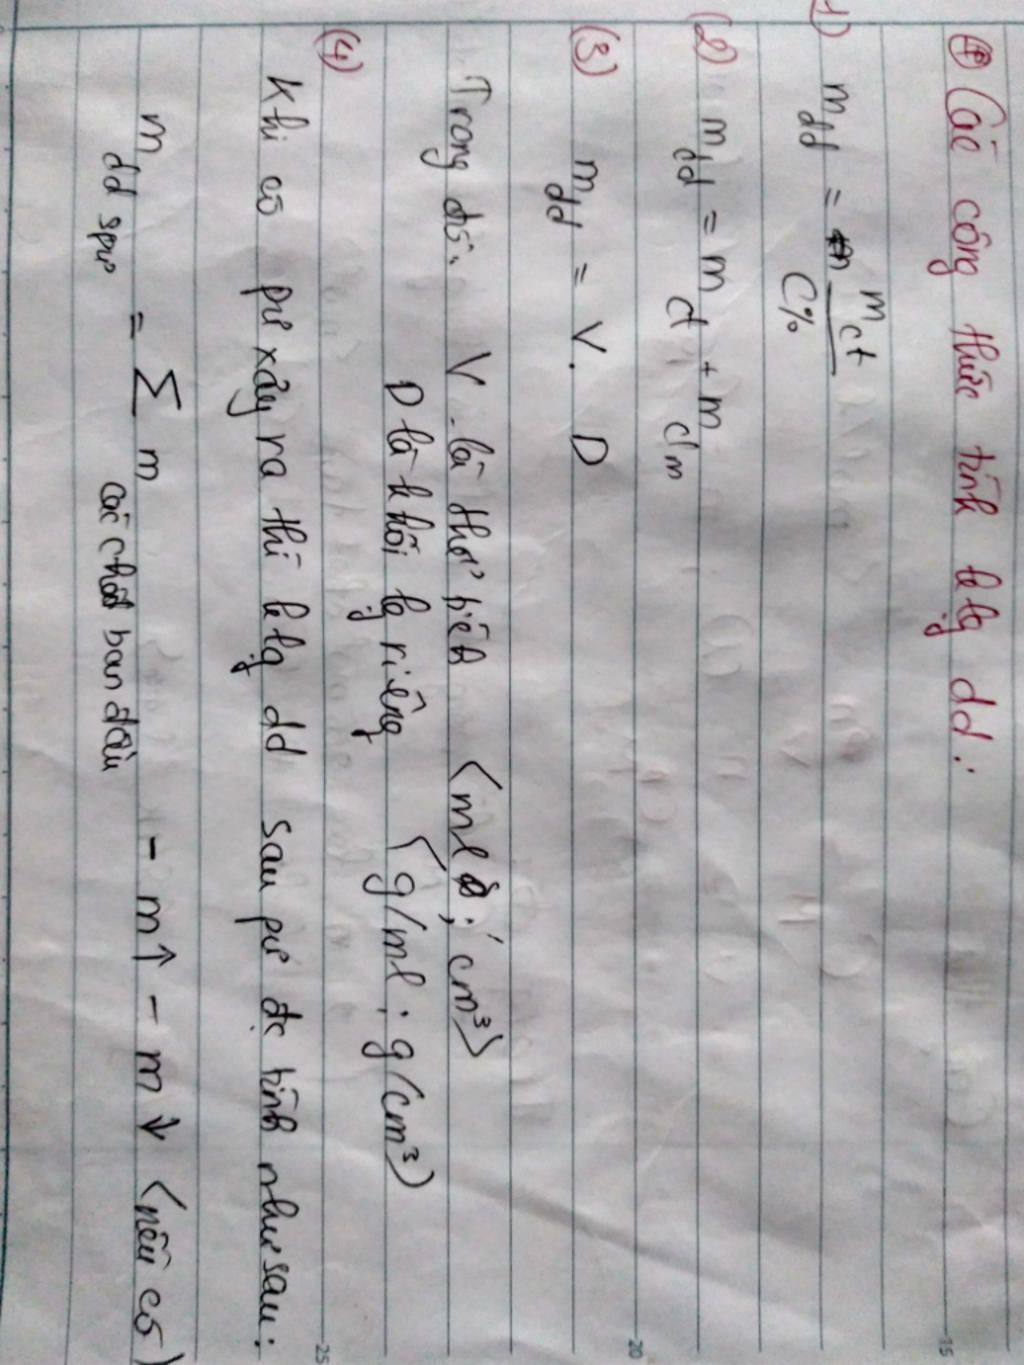 ⊕ Các công thức tính klg dd:
(1) mdd = mct / C%
(2) mdd = mct + mdm
(3) mdd = V. D
Trong đó: V là thể tích (ml; cm³)
D là khối lg riêng (g/ml; g/cm³)
(4)
Khi có pư xảy ra thì klg dd sau pư đc tính như sau:
mdd spư = Σ m các chất ban đầu - m↑ - m↓ (nếu có)
15
20
25